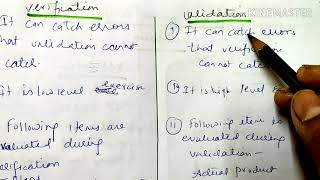 verification
It can catch errors
that validation cannot
catch.
It is low level exercise
Following items are
evaluated during
verification
validation
KINEMASTER
It can catch errors
that verification
cannot
It is high level
Following item
evaluated during
validation -
Actual product